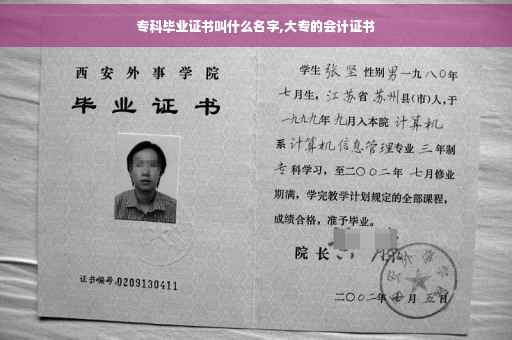 专科毕业证书叫什么名字,大专的会计证书
西安外事学院
毕业证书
证书编号:0209130411
学生 张坚 性别 男 一九八〇年
七月生, 江苏省 苏州县(市)人,于
一九九九年 九月入本院 计算机
系 计算机信息管理专业 三 年制
专 科学习，至二〇〇二年 七月修业
期满，学完教学计划规定的全部课程，
成绩合格，准予毕业。
院长
二〇〇二年 月 五日